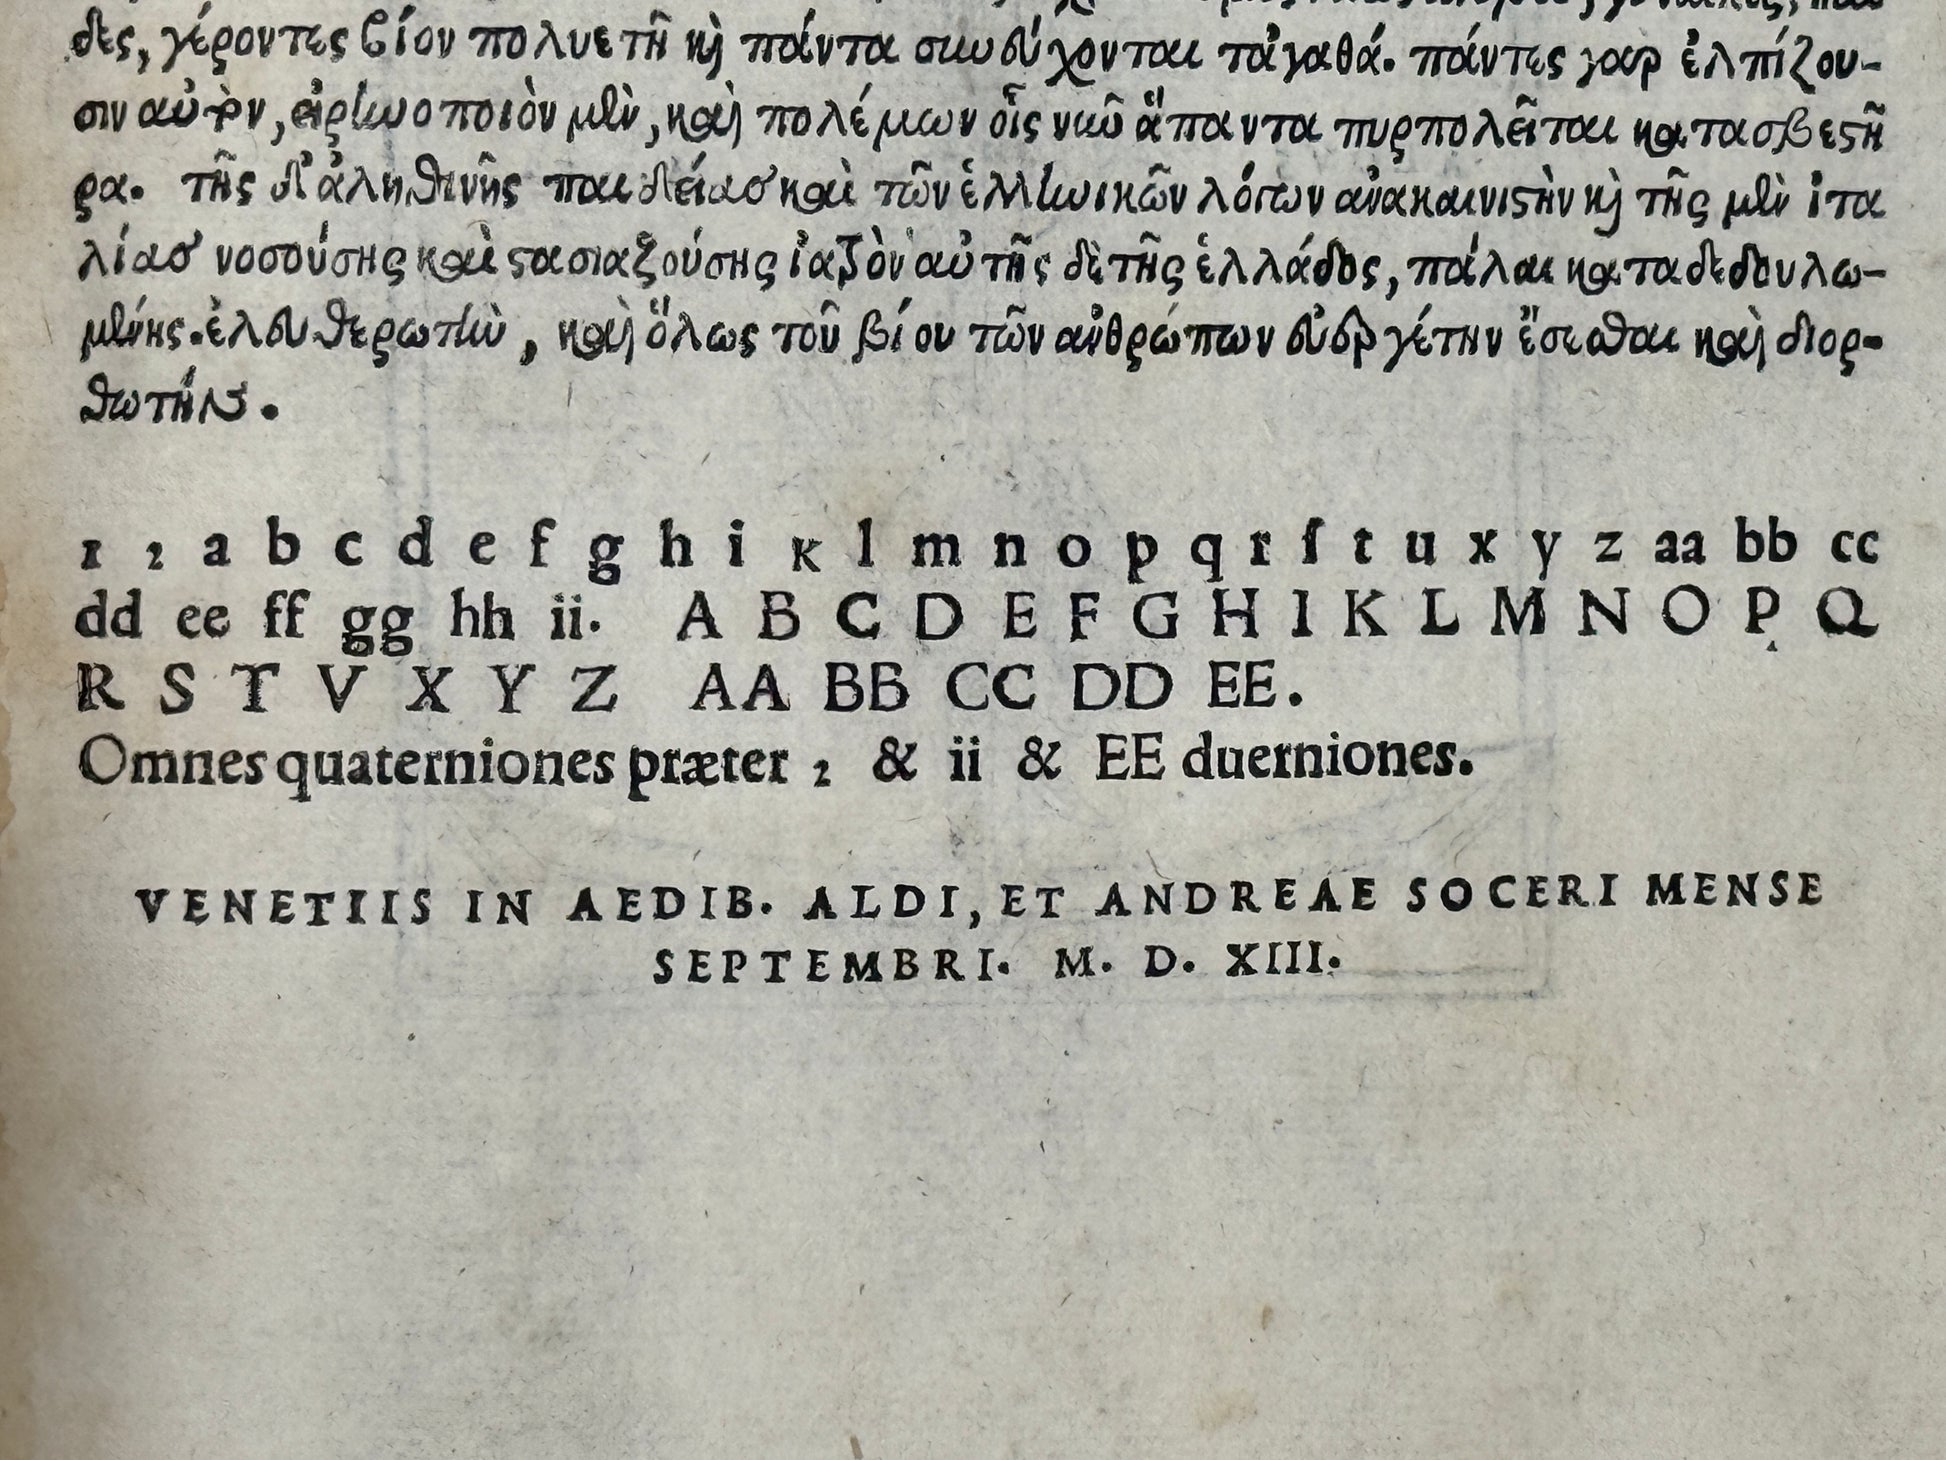 δες, γέροντες βίον πολυετῆ κὶ πάντα συνεύχονται τἀγαθά. πάντες γαρ ἐλπίζου-
σιν αὐτὸν, εἰρηνοποιὸν μὲν, καὶ πολέμων οἷς νυῦ ἅπαντα πυρπολεῖται κατασβεστῆ
ρα. τῆς δ' ἀληθινῆς παιδείασ καὶ τῶν ἑλληνικῶν λόγων ἀνακαινιστὴν κὶ τῆς μὲν ἰτα
λίασ νοσούσης καὶ στασιαζούσης ἰατρὸν αὐτῆς δὲ τῆς ἑλλάδος, πάλαι καταδεδουλω-
μένης. ἐλευθερωτὴν, καὶ ὅλως τοῦ βίου τῶν ἀνθρώπων εὐεργέτην ἔσεσθαι καὶ διορ-
θωτῆρα.
1 2 a b c d e f g h i k l m n o p q r ſ t u x y z aa bb cc
dd ee ff gg hh ii. A B C D E F G H I K L M N O P Q
R S T V X Y Z AA BB CC DD EE.
Omnes quaterniones præter 2 & ii & EE duerniones.
VENETIIS IN AEDIB. ALDI, ET ANDREAE SOCERI MENSE
SEPTEMBRI. M. D. XIII.